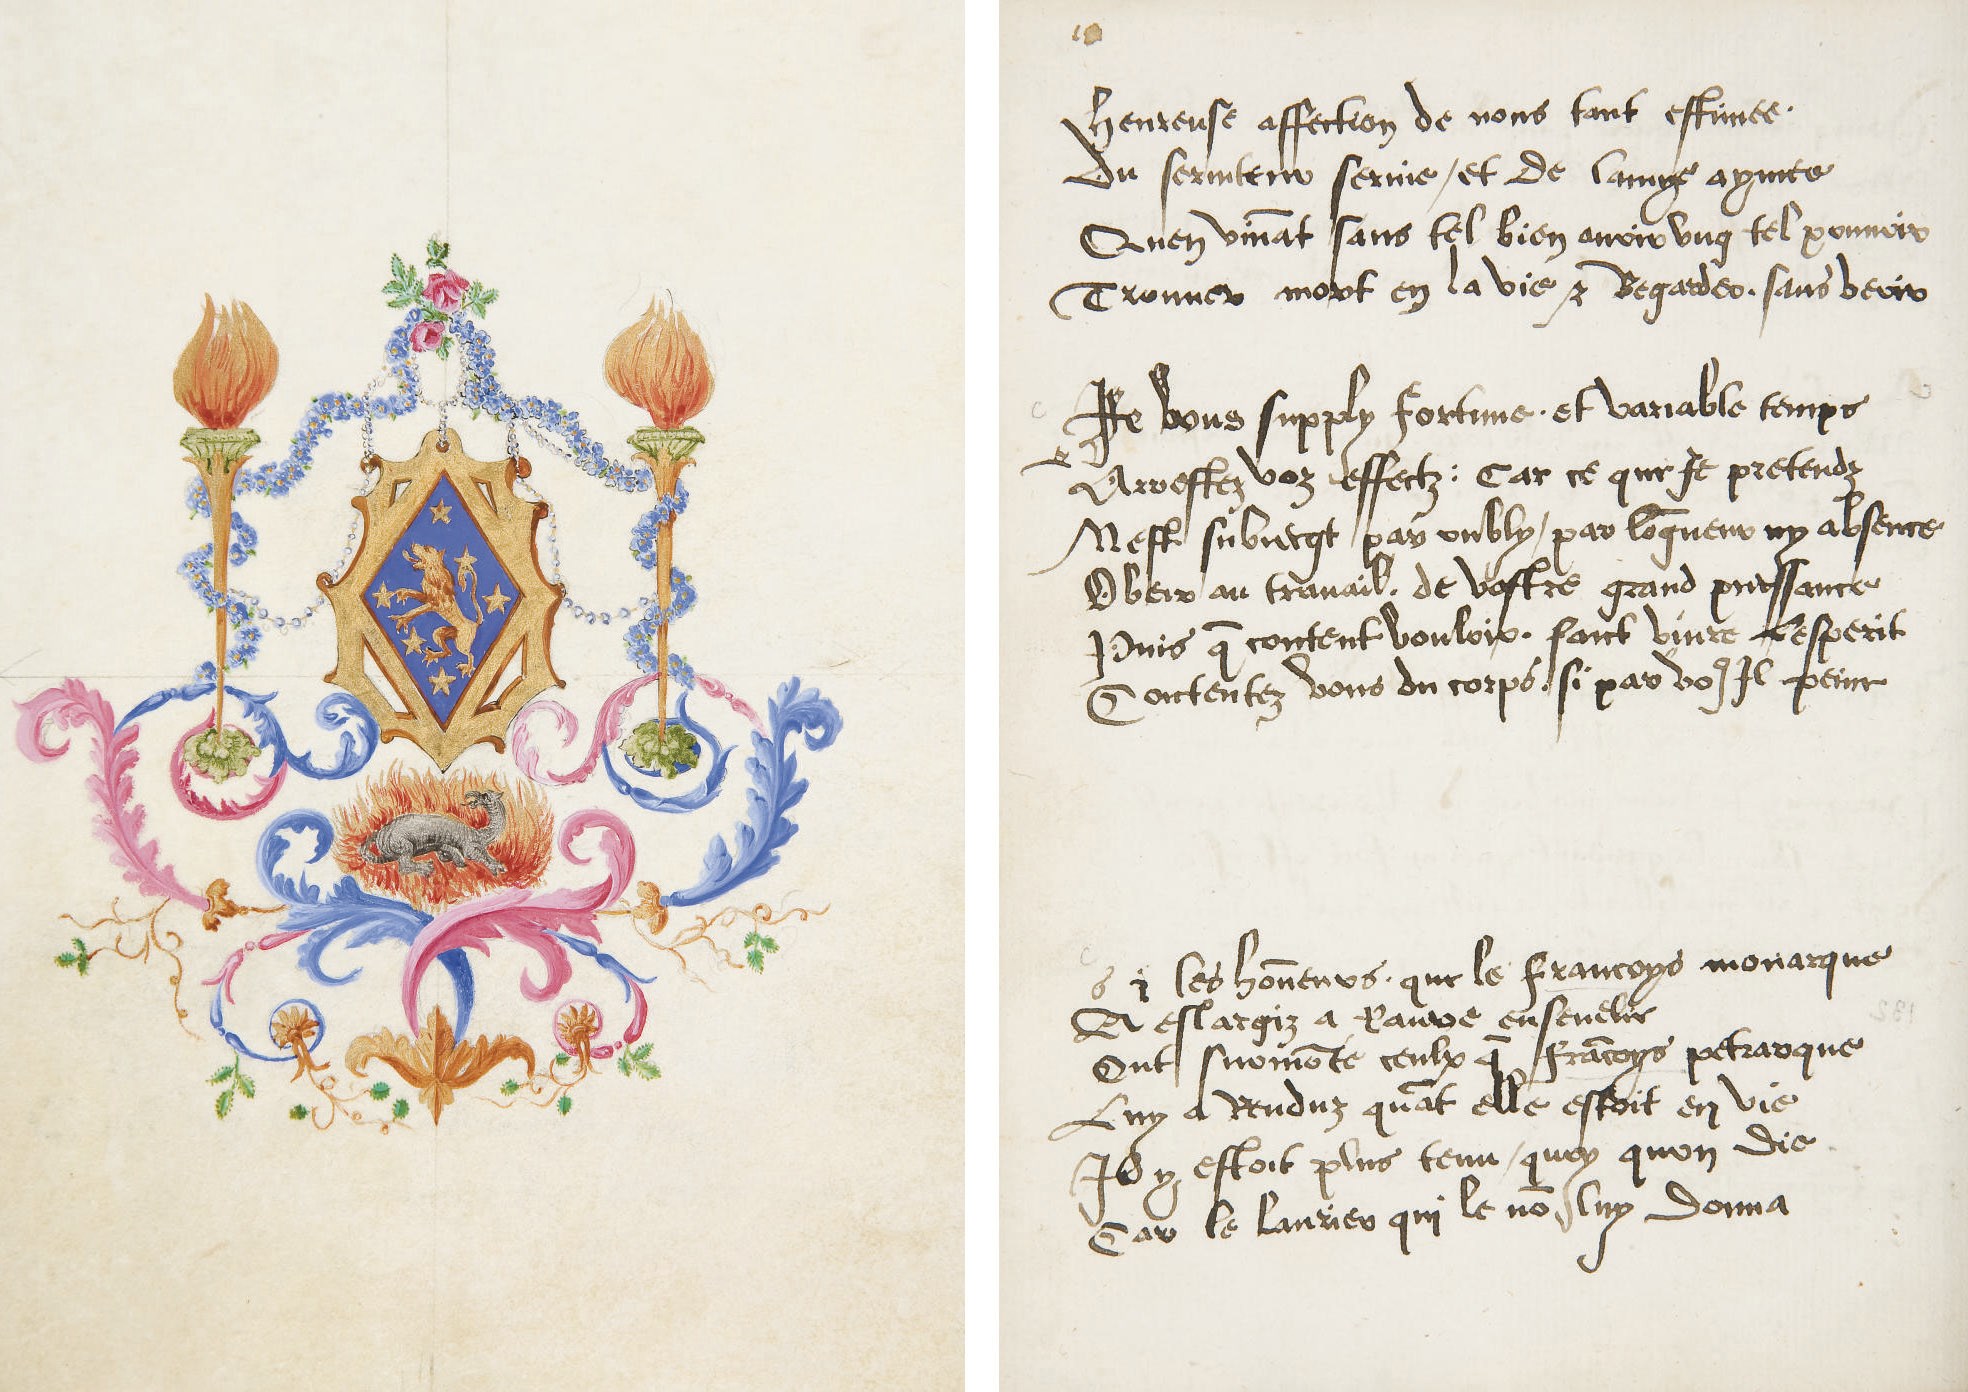 Heureuse affection de nous tant estimee.
Du seruiteur seruie / et de lamye aymee
Quen viuāt sans tel bien auoir vng tel pouuoir
Trouuer mort en la vie & Regarder. sans veoir
Je vous supply fortune. et variable temps
Arrestez voz effectz : Car ce que Je pretendz
Nest subiect par oubly / par lōgueur ny absence
Obeir au trauail. de vostre grand puissance
Puis q̄ content vouloir. faict viure lesperit
Contentez vous du corps. si par vo9 Il perit
Si les hōneurs. que le francoys monarque
A eslargiz a Laure enseuelie
Ont surmōte ceulx q̄ frācoys petrarque
Luy a Renduz quāt elle estoit en vie
Il y estoit plus tenu / quoy quon die
Car le laurier qui le nō luy donna
132